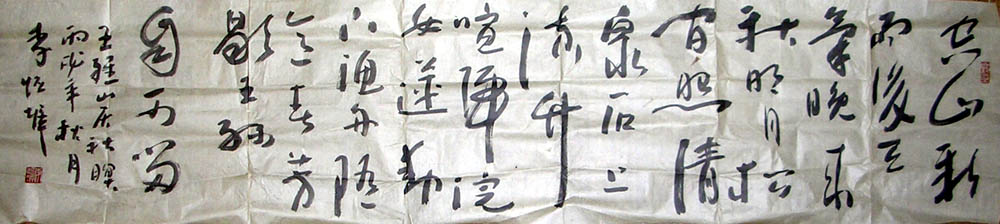 空山新
雨後天
氣晚來
秋明月松
间照清
泉石上
流竹
喧歸浣
女蓮動
下漁舟隨
意春芳
歇王孫
自可留
王維山居秋暝
丙戌年秋月
李